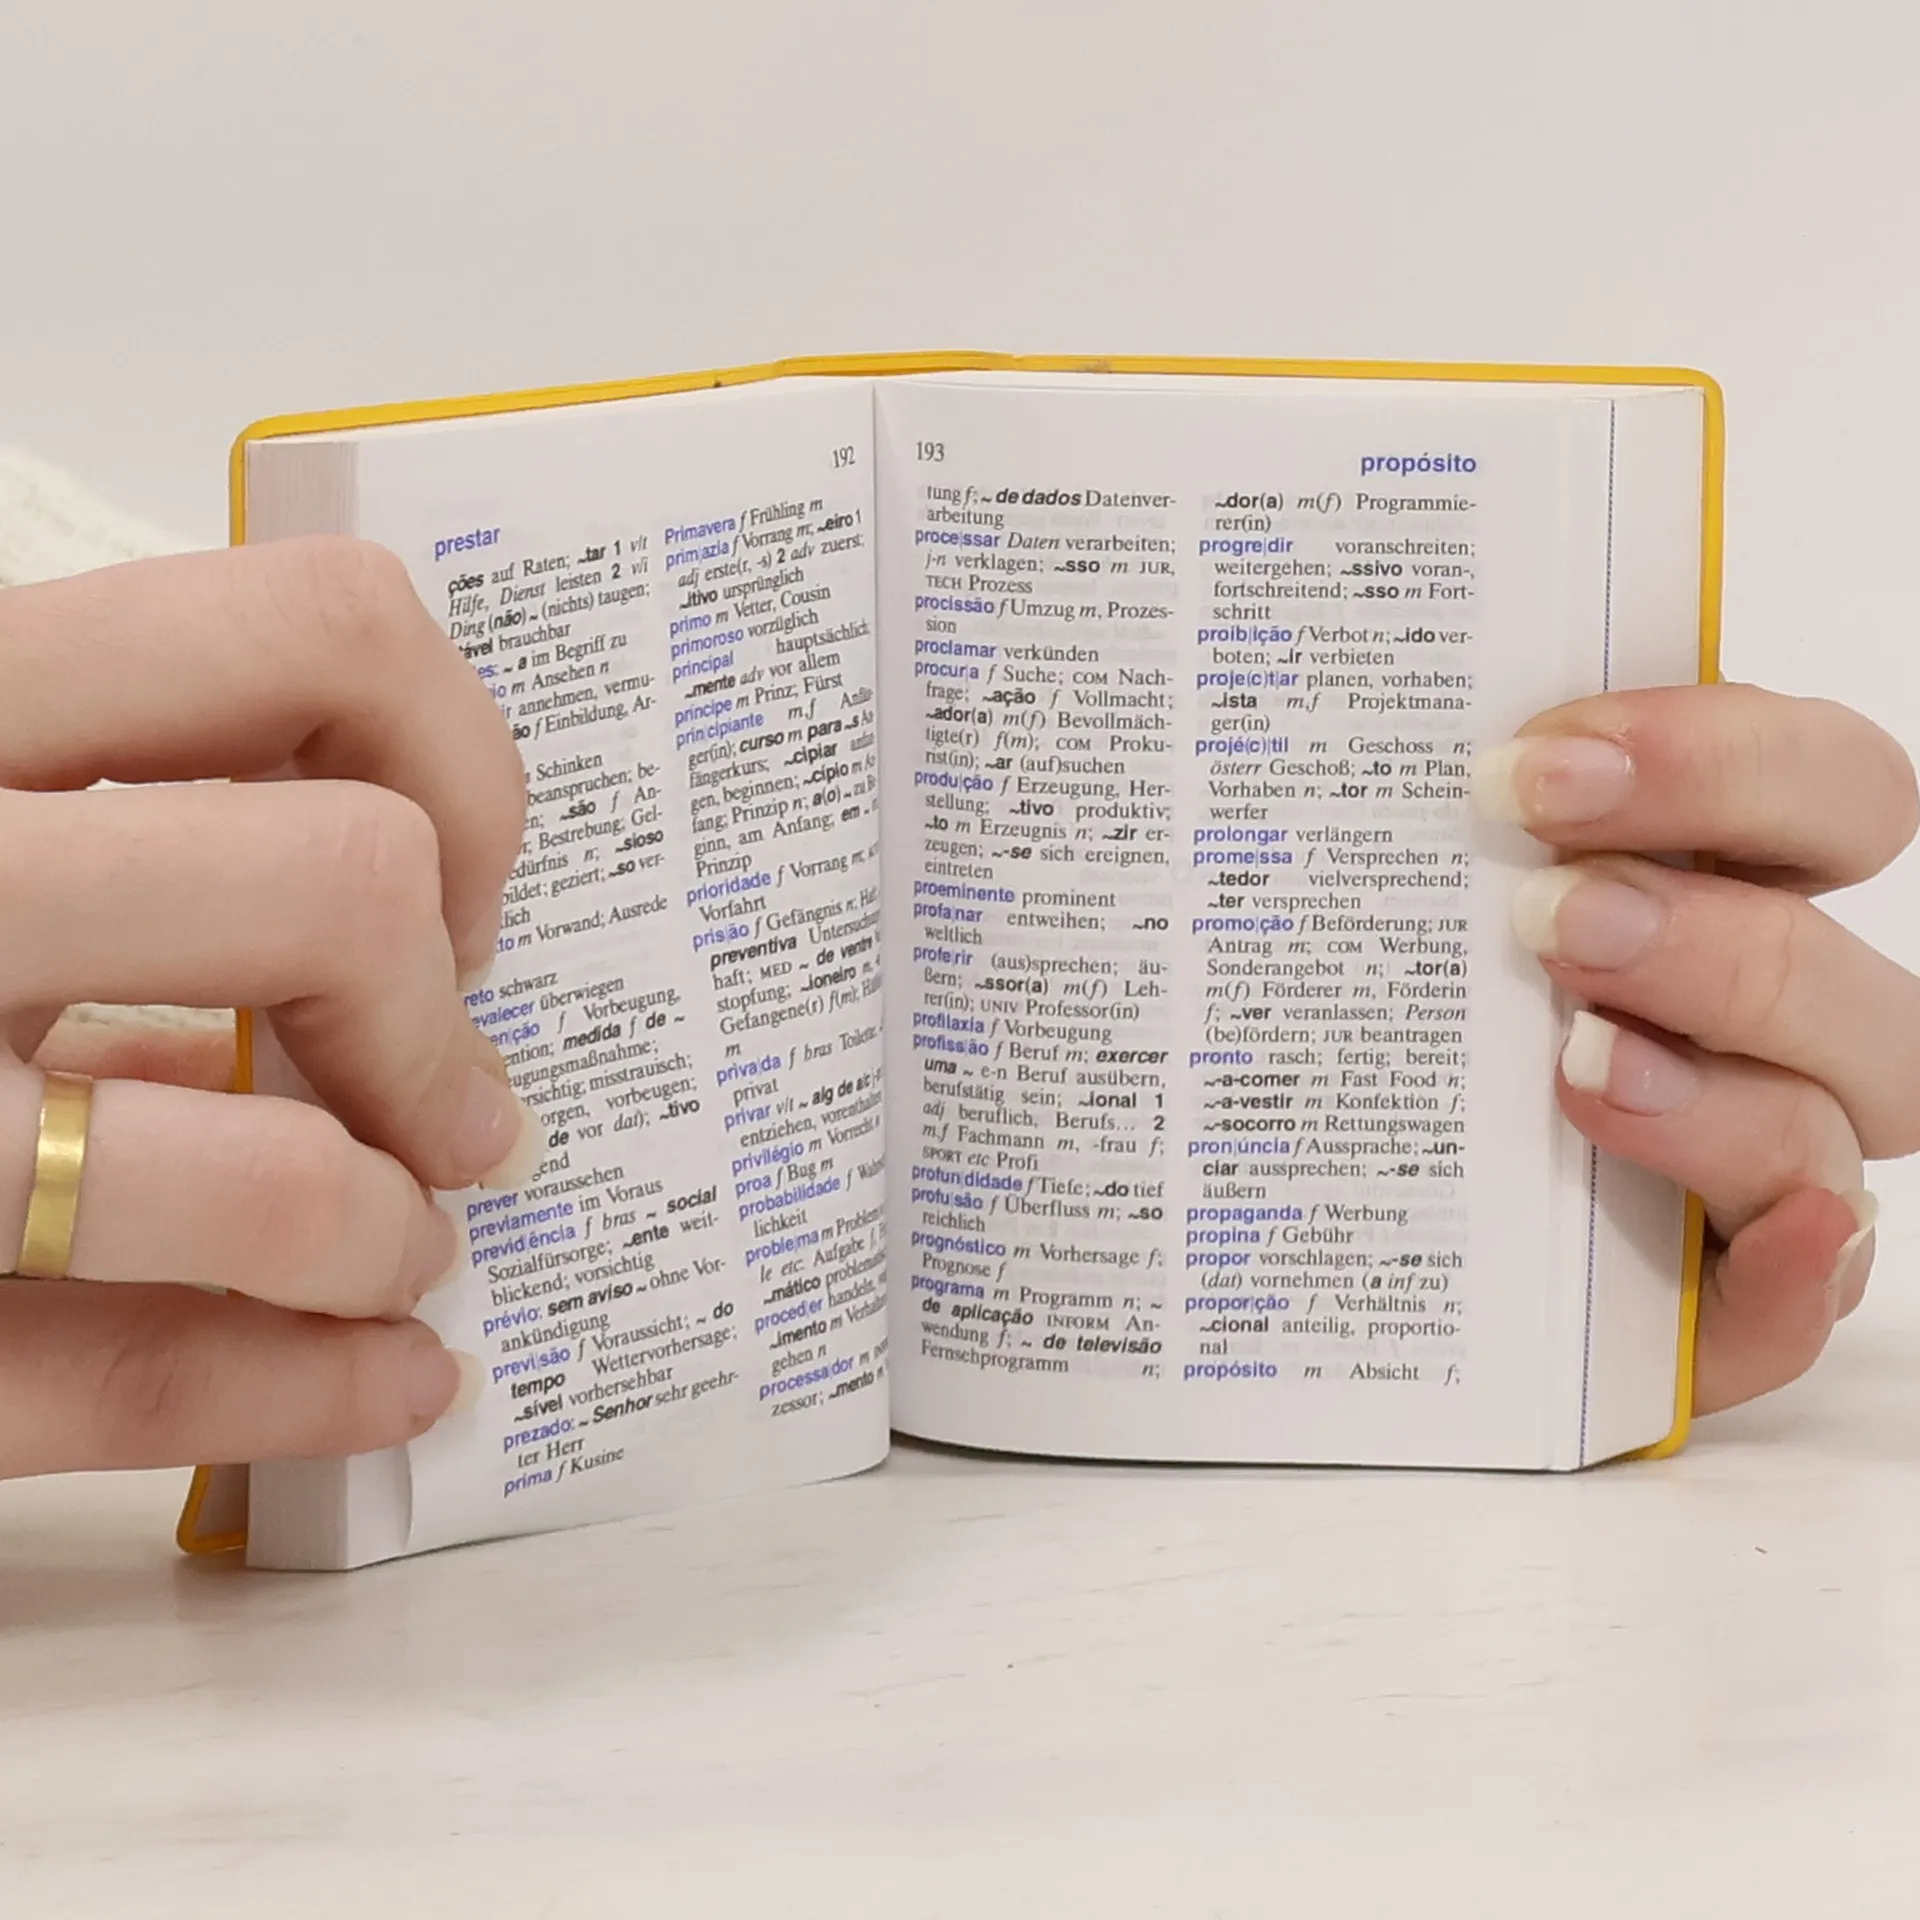 192
prestar
ções auf Raten; ~tar 1 v/t
Hilfe, Dienst leisten 2 v/i
Ding (não) ~ (nichts) taugen;
brauchbar
~ a im Begriff zu
m Ansehen n
annehmen, vermu-
f Einbildung, Ar-
Schinken
beanspruchen; be-
~são f An-
Bestrebung; Gel-
n; ~sioso
geziert; ~so ver-
m Vorwand; Ausrede
schwarz
überwiegen
f Vorbeugung,
medida f de ~
misstrauisch;
vorbeugen;
de vor dat); ~tivo
prever voraussehen
previamente im Voraus
previd|ência f bras ~ social
Sozialfürsorge; ~ente weit-
blickend; vorsichtig
prévio: sem aviso ~ ohne Vor-
ankündigung
previ|são f Voraussicht; ~ do
tempo Wettervorhersage;
~sível vorhersehbar
prezado: ~ Senhor sehr geehr-
ter Herr
prima f Kusine
Primavera f Frühling m
prim|azia f Vorrang m; ~eiro 1
adj erste(r, -s) 2 adv zuerst;
~itivo ursprünglich
primo m Vetter, Cousin
primoroso vorzüglich
principal hauptsächlich
~mente adv vor allem
príncipe m Prinz; Fürst
prin|cipiante m,f Anfän-
ger(in); curso m para ~s An-
fängerkurs; ~cipiar anfan-
gen, beginnen; ~cípio m An-
fang; Prinzip n; a(o) ~ zu Be-
ginn, am Anfang; em ~
Prinzip
prioridade f Vorrang m;
Vorfahrt
pris|ão f Gefängnis n; Haft
preventiva Untersuchungs-
haft; MED ~ de ventre
stopfung; ~ioneiro m,
Gefangene(r) f(m);
m
priva|da f bras Toilette;
privat
privar v/t ~ alg de a/c
entziehen, vorenthalten
privilégio m Vorrecht n
proa f Bug m
probabilidade f
lichkeit
proble|ma m
le etc. Aufgabe f,
~mático
proced|er handeln,
~imento m
gehen n
processa|dor m
zessor; ~mento m
193
propósito
tung f; ~ de dados Datenver-
arbeitung
proce|ssar Daten verarbeiten;
j-n verklagen; ~sso m JUR,
TECH Prozess
procissão f Umzug m, Prozes-
sion
proclamar verkünden
procur|a f Suche; COM Nach-
frage; ~ação f Vollmacht;
~ador(a) m(f) Bevollmäch-
tigte(r) f(m); COM Proku-
rist(in); ~ar (auf)suchen
produ|ção f Erzeugung, Her-
stellung; ~tivo produktiv;
~to m Erzeugnis n; ~zir er-
zeugen; ~-se sich ereignen,
eintreten
proeminente prominent
profa|nar entweihen; ~no
weltlich
profe|rir (aus)sprechen; äu-
ßern; ~ssor(a) m(f) Leh-
rer(in); UNIV Professor(in)
profilaxia f Vorbeugung
profiss|ão f Beruf m; exercer
uma ~ e-n Beruf ausübern,
berufstätig sein; ~ional 1
adj beruflich, Berufs... 2
m,f Fachmann m, -frau f;
SPORT etc Profi
profun|didade f Tiefe; ~do tief
profu|são f Überfluss m; ~so
reichlich
prognóstico m Vorhersage f;
Prognose f
programa m Programm n; ~
de aplicação INFORM An-
wendung f; ~ de televisão
Fernsehprogramm n;
~dor(a) m(f) Programmie-
rer(in)
progre|dir voranschreiten;
weitergehen; ~ssivo voran-,
fortschreitend; ~sso m Fort-
schritt
proib|ição f Verbot n; ~ido ver-
boten; ~ir verbieten
proje(c)t|ar planen, vorhaben;
~ista m,f Projektmana-
ger(in)
projé(c)|til m Geschoss n;
österr Geschoß; ~to m Plan,
Vorhaben n; ~tor m Schein-
werfer
prolongar verlängern
prome|ssa f Versprechen n;
~tedor vielversprechend;
~ter versprechen
promo|ção f Beförderung; JUR
Antrag m; COM Werbung,
Sonderangebot n; ~tor(a)
m(f) Förderer m, Förderin
f; ~ver veranlassen; Person
(be)fördern; JUR beantragen
pronto rasch; fertig; bereit;
~-a-comer m Fast Food n;
~-a-vestir m Konfektion f;
~-socorro m Rettungswagen
pron|úncia f Aussprache; ~un-
ciar aussprechen; ~-se sich
äußern
propaganda f Werbung
propina f Gebühr
propor vorschlagen; ~-se sich
(dat) vornehmen (a inf zu)
propor|ção f Verhältnis n;
~cional anteilig, proportio-
nal
propósito m Absicht f;